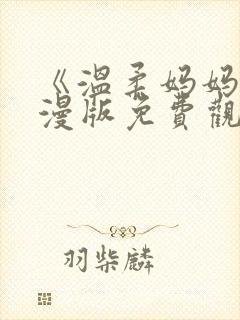 《溫柔妈妈
漫版免費觀
羽柴麟